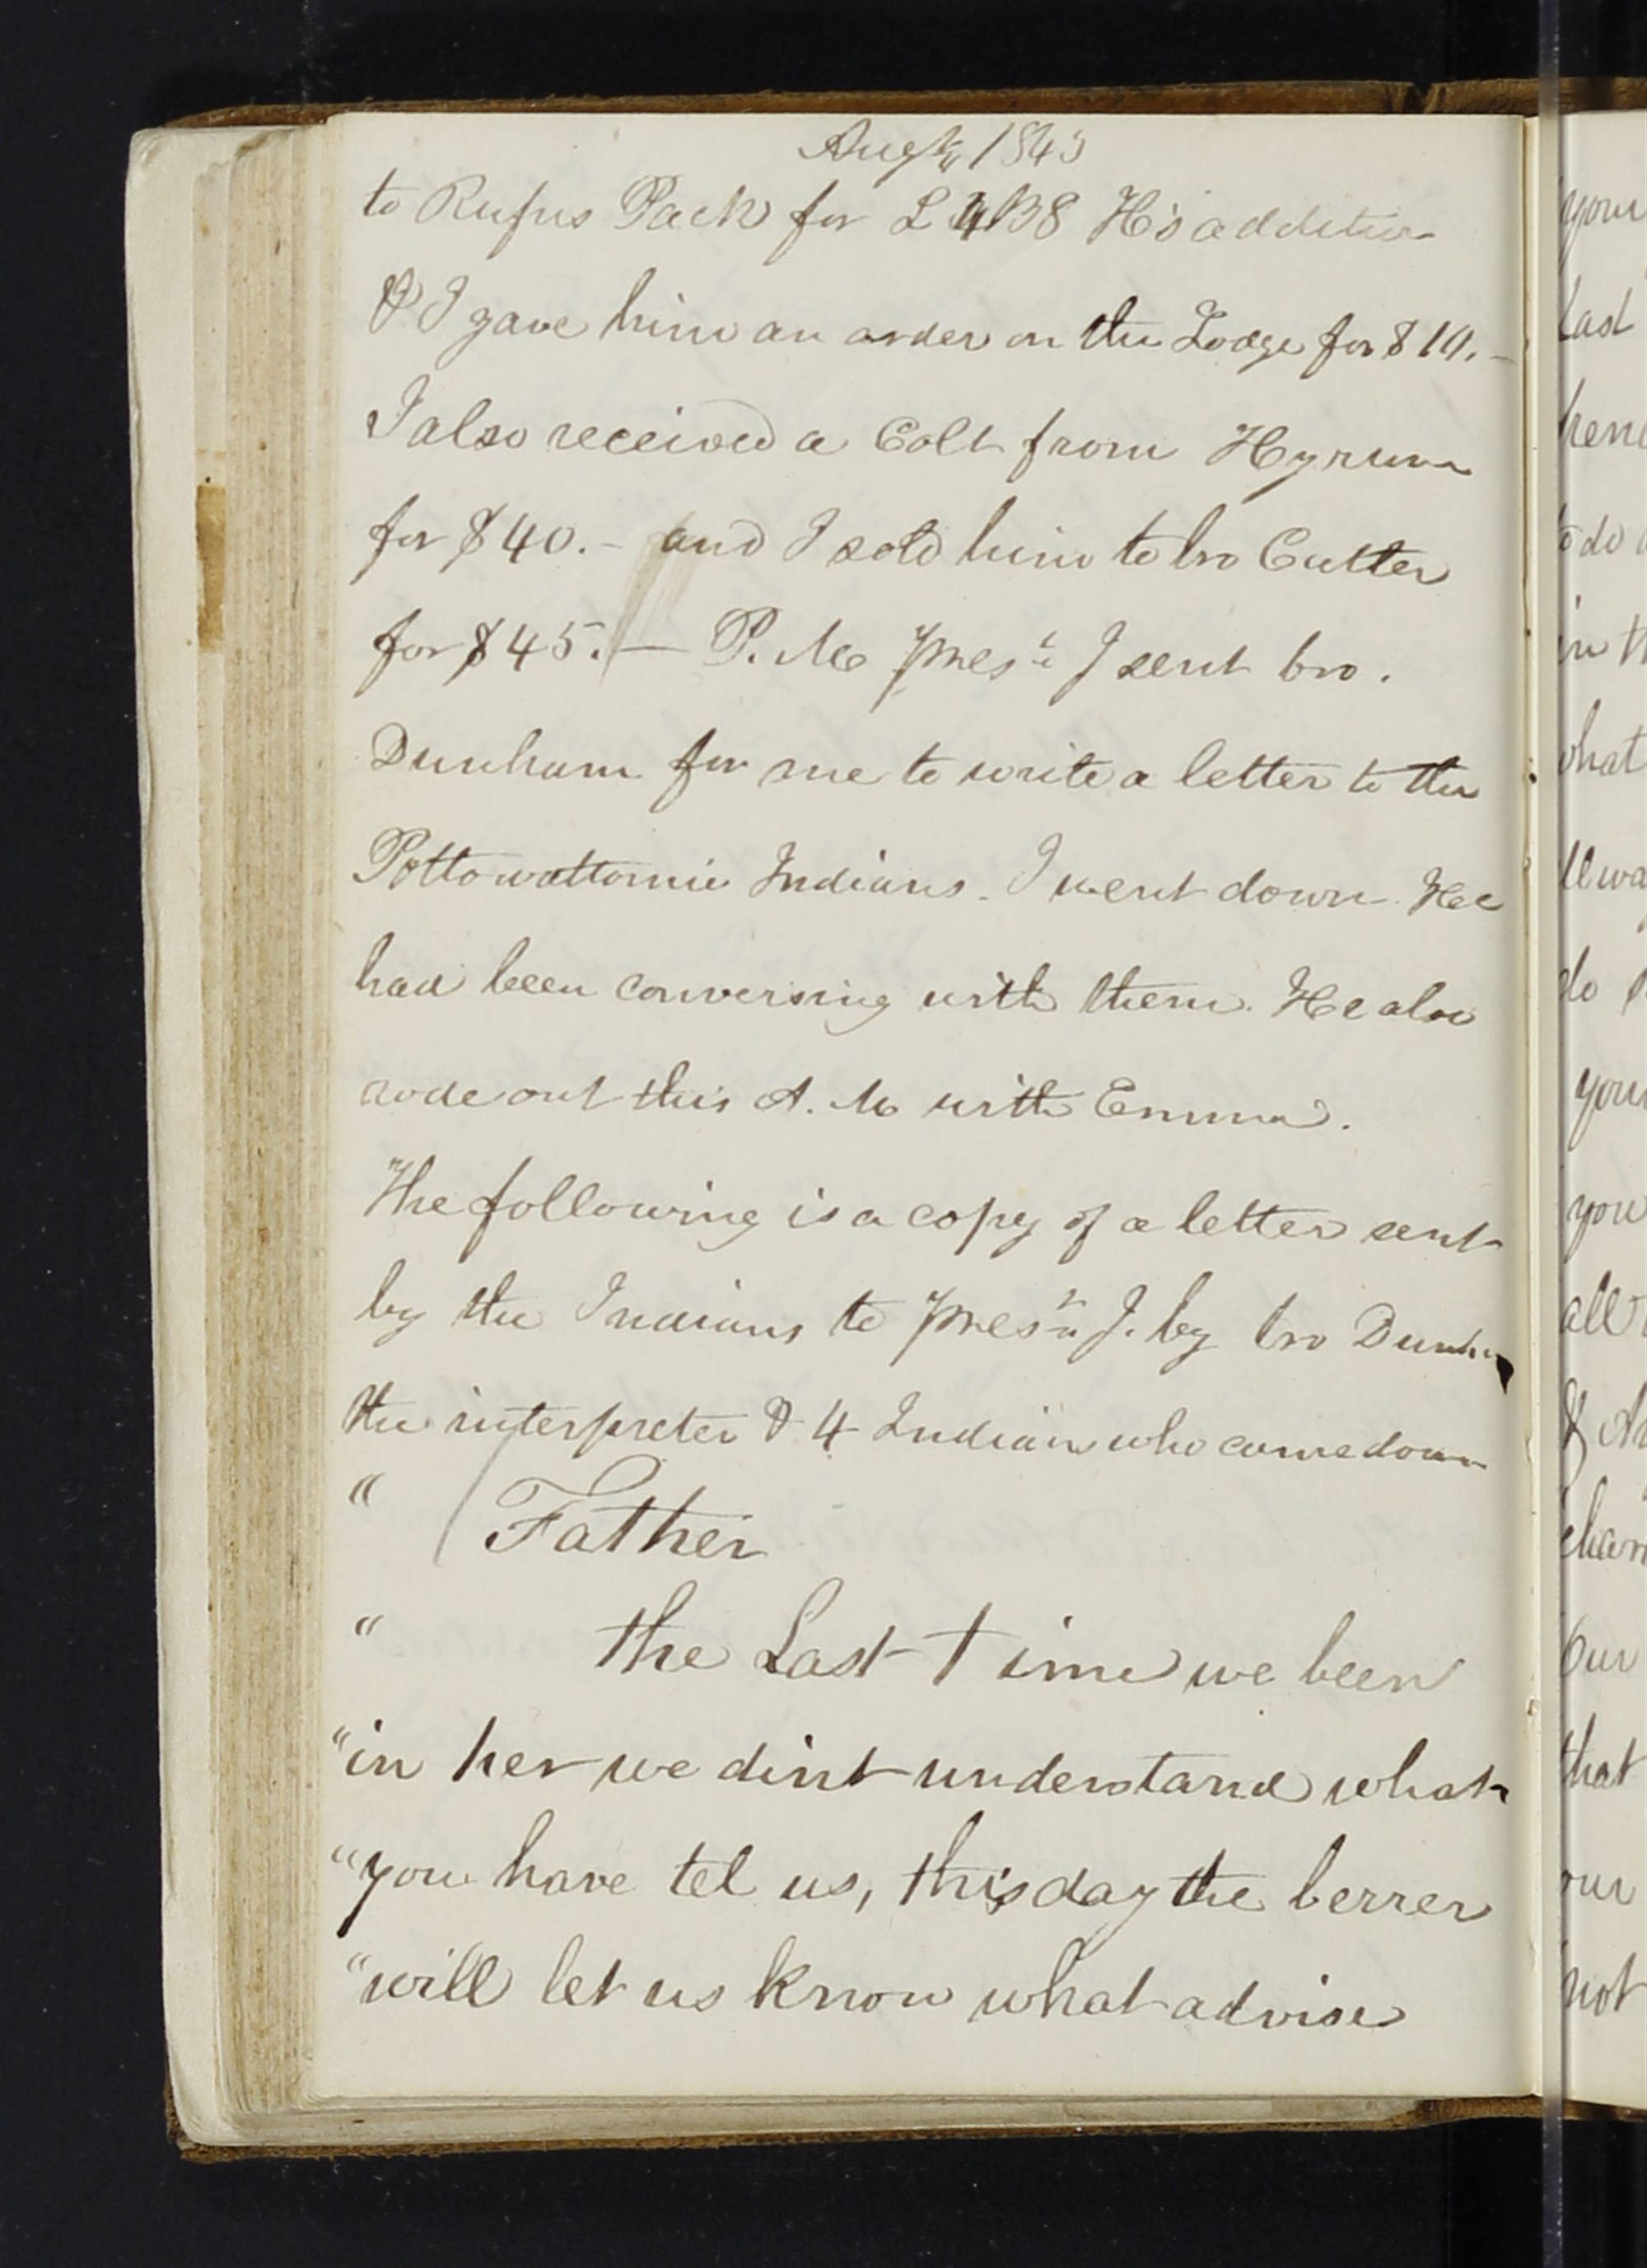 Augt. 1843
to Rufus Pack for L 4 B 8 H's addition
& I gave him an order on the Lodge for $10.—
I also received a Colt from Hyrum
for $40.— and I sold him to bro Cutler
for $45.— P. M Prest. J sent bro.
Dunham for me to write a letter to the
Pottowattomie Indians. I went down. He
had been conversing with them. He also
rode out this A. M with Emma.
The following is a copy of a letter sent
by the Indians to Prest. J. by bro Dunham
the interpreter & 4 Indian who came down
" Father
" the Last time we been
"in her we dint understand what
"you have tel us, this day the berrer
"will let us know what advise
your
last
do
what
do
your
you
all
&
our
that
our
not